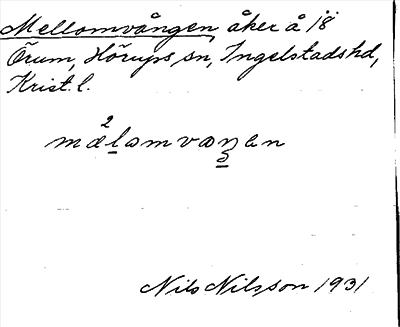 Mellomvången, åker å 1⁸
Örum, Hörups sn, Ingelstads hd,
Krist. l.
mælamvaŋen
Nils Nilsson 1931